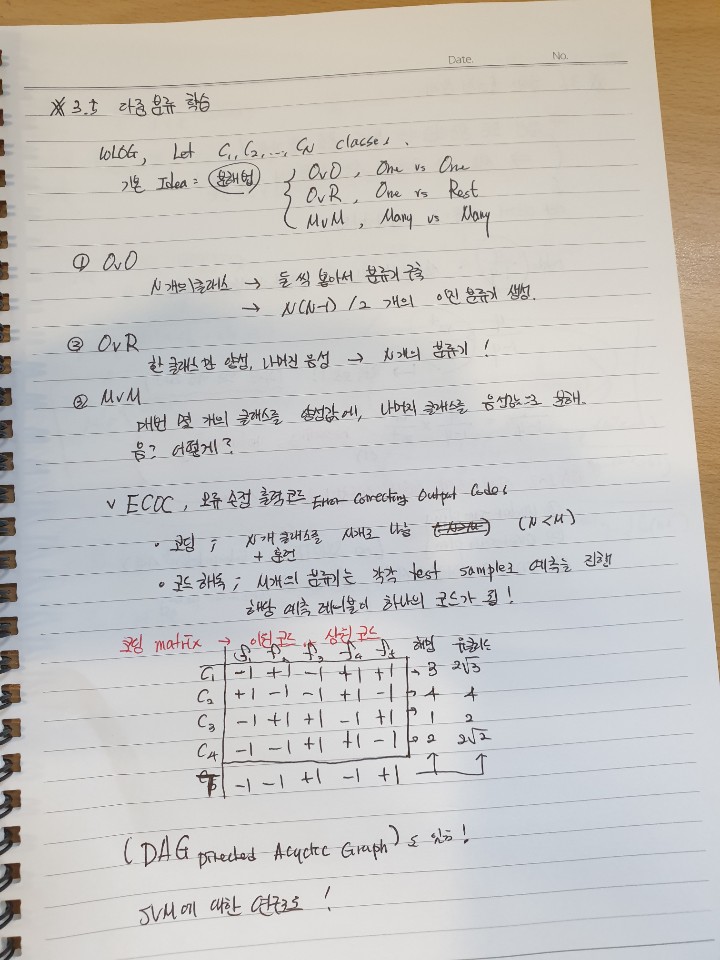 Date. No.
※ 3.5 다중 분류 학습
WLOG, Let C₁, C₂, ..., C_N classes.
기본 Idea = 분해법 { OvO, One vs One
OvR, One vs Rest
MvM, Many vs Many
① OvO
N개의 클래스 → 둘 씩 뽑아서 분류기 구축
→ N(N-1)/2 개의 이진 분류기 생성.
② OvR
한 클래스만 양성, 나머진 음성 → N개의 분류기!
③ MvM
매번 몇 개의 클래스를 양성값에, 나머지 클래스를 음성값으로 분해.
음? 어떻게?
v ECOC, 오류 수정 출력 코드 Error Correcting Output Codes
• 코딩 ; N개 클래스를 M개로 나눔 (N<M)
+ 훈련
• 코드 해독 ; M개의 분류기는 각각 test sample로 예측을 진행
해당 예측 레이블이 하나의 코드가 됨!
코딩 matrix → 이진코드, 삼진 코드
f₁ f₂ f₃ f₄ f₅ 해밍 유클리드
C₁ -1 +1 -1 +1 +1 → 3 2√3
C₂ +1 -1 -1 +1 -1 → 4 4
C₃ -1 +1 +1 -1 +1 → 1 2
C₄ -1 -1 +1 +1 -1 → 2 2√2
-1 -1 +1 -1 +1
(DAG Directed Acyclic Graph)도 있음!
SVM에 대한 연구로!